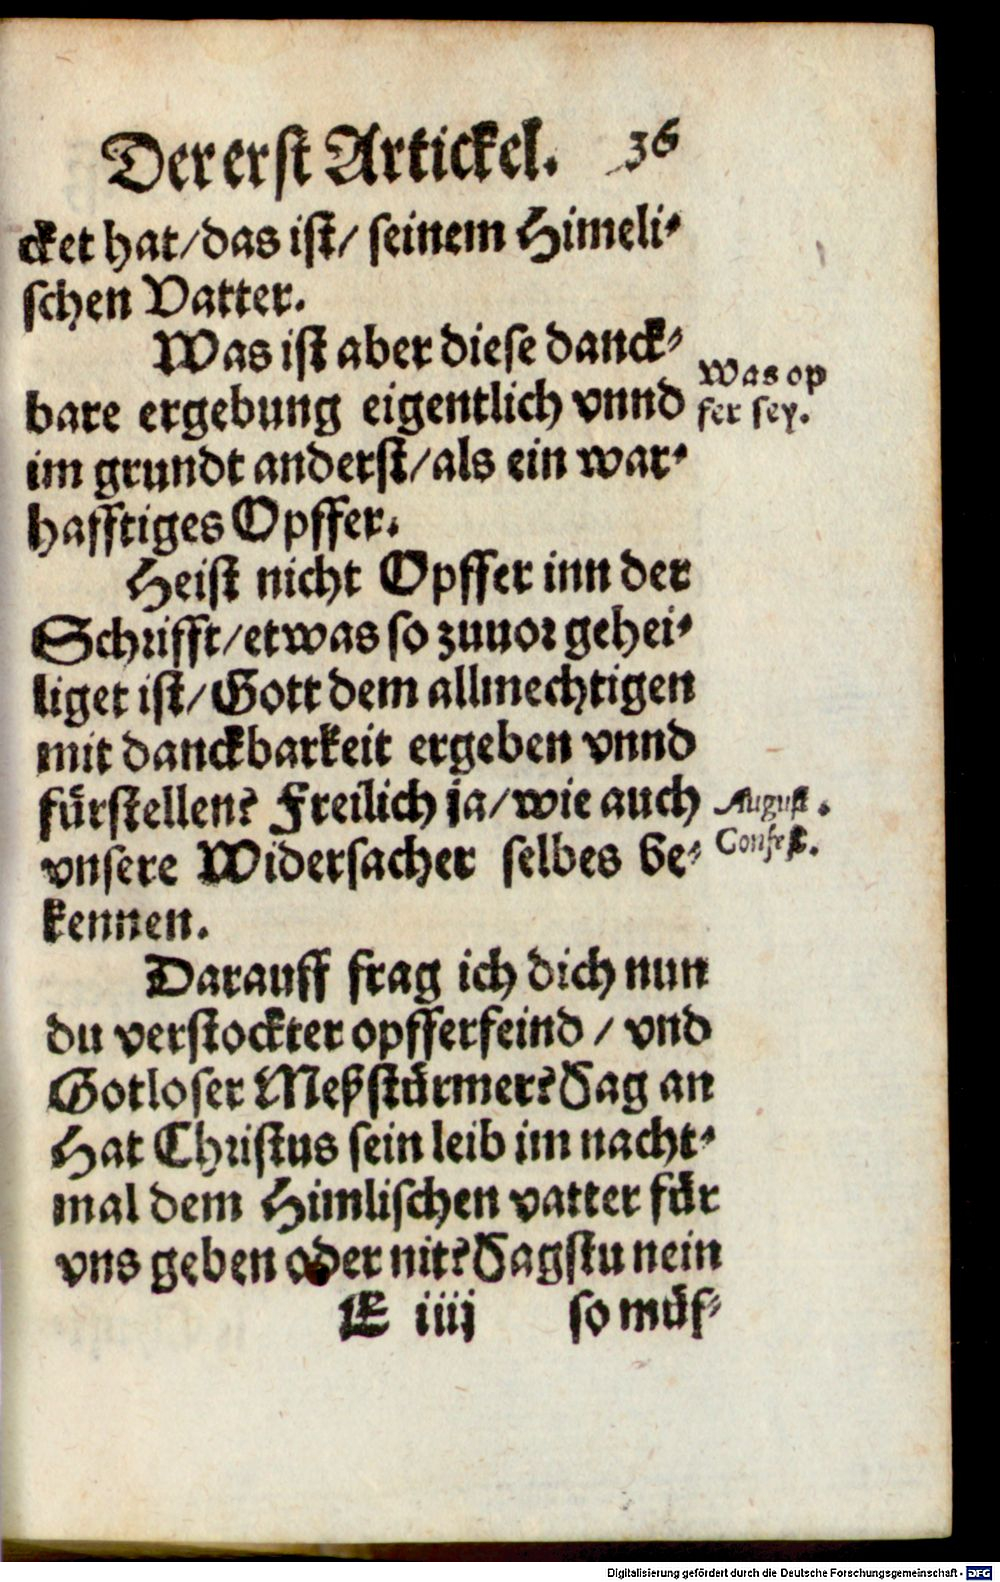 Der erst Artickel. 36
cket hat/das ist/ seinem Himeli⸗
schen Vatter.
Was ist aber diese danck⸗
bare ergebung eigentlich vnnd
im grundt anderst/als ein war⸗
hafftiges Opffer.
Was op
fer sey.
Heist nicht Opffer inn der
Schrifft/etwas so zuuor gehei⸗
liget ist/Gott dem allmechtigen
mit danckbarkeit ergeben vnnd
fürstellen? Freilich ja/wie auch
vnsere Widersacher selbes be⸗
kennen.
August.
Confess.
Darauff frag ich dich nun
du verstockter opfferfeind / vnd
Gotloser Meßstürmer? Sag an
Hat Christus sein leib im nacht⸗
mal dem Himlischen vatter für
vns geben oder nit? Sagstu nein
E iiij so müs⸗
Digitalisierung gefördert durch die Deutsche Forschungsgemeinschaft - DFG